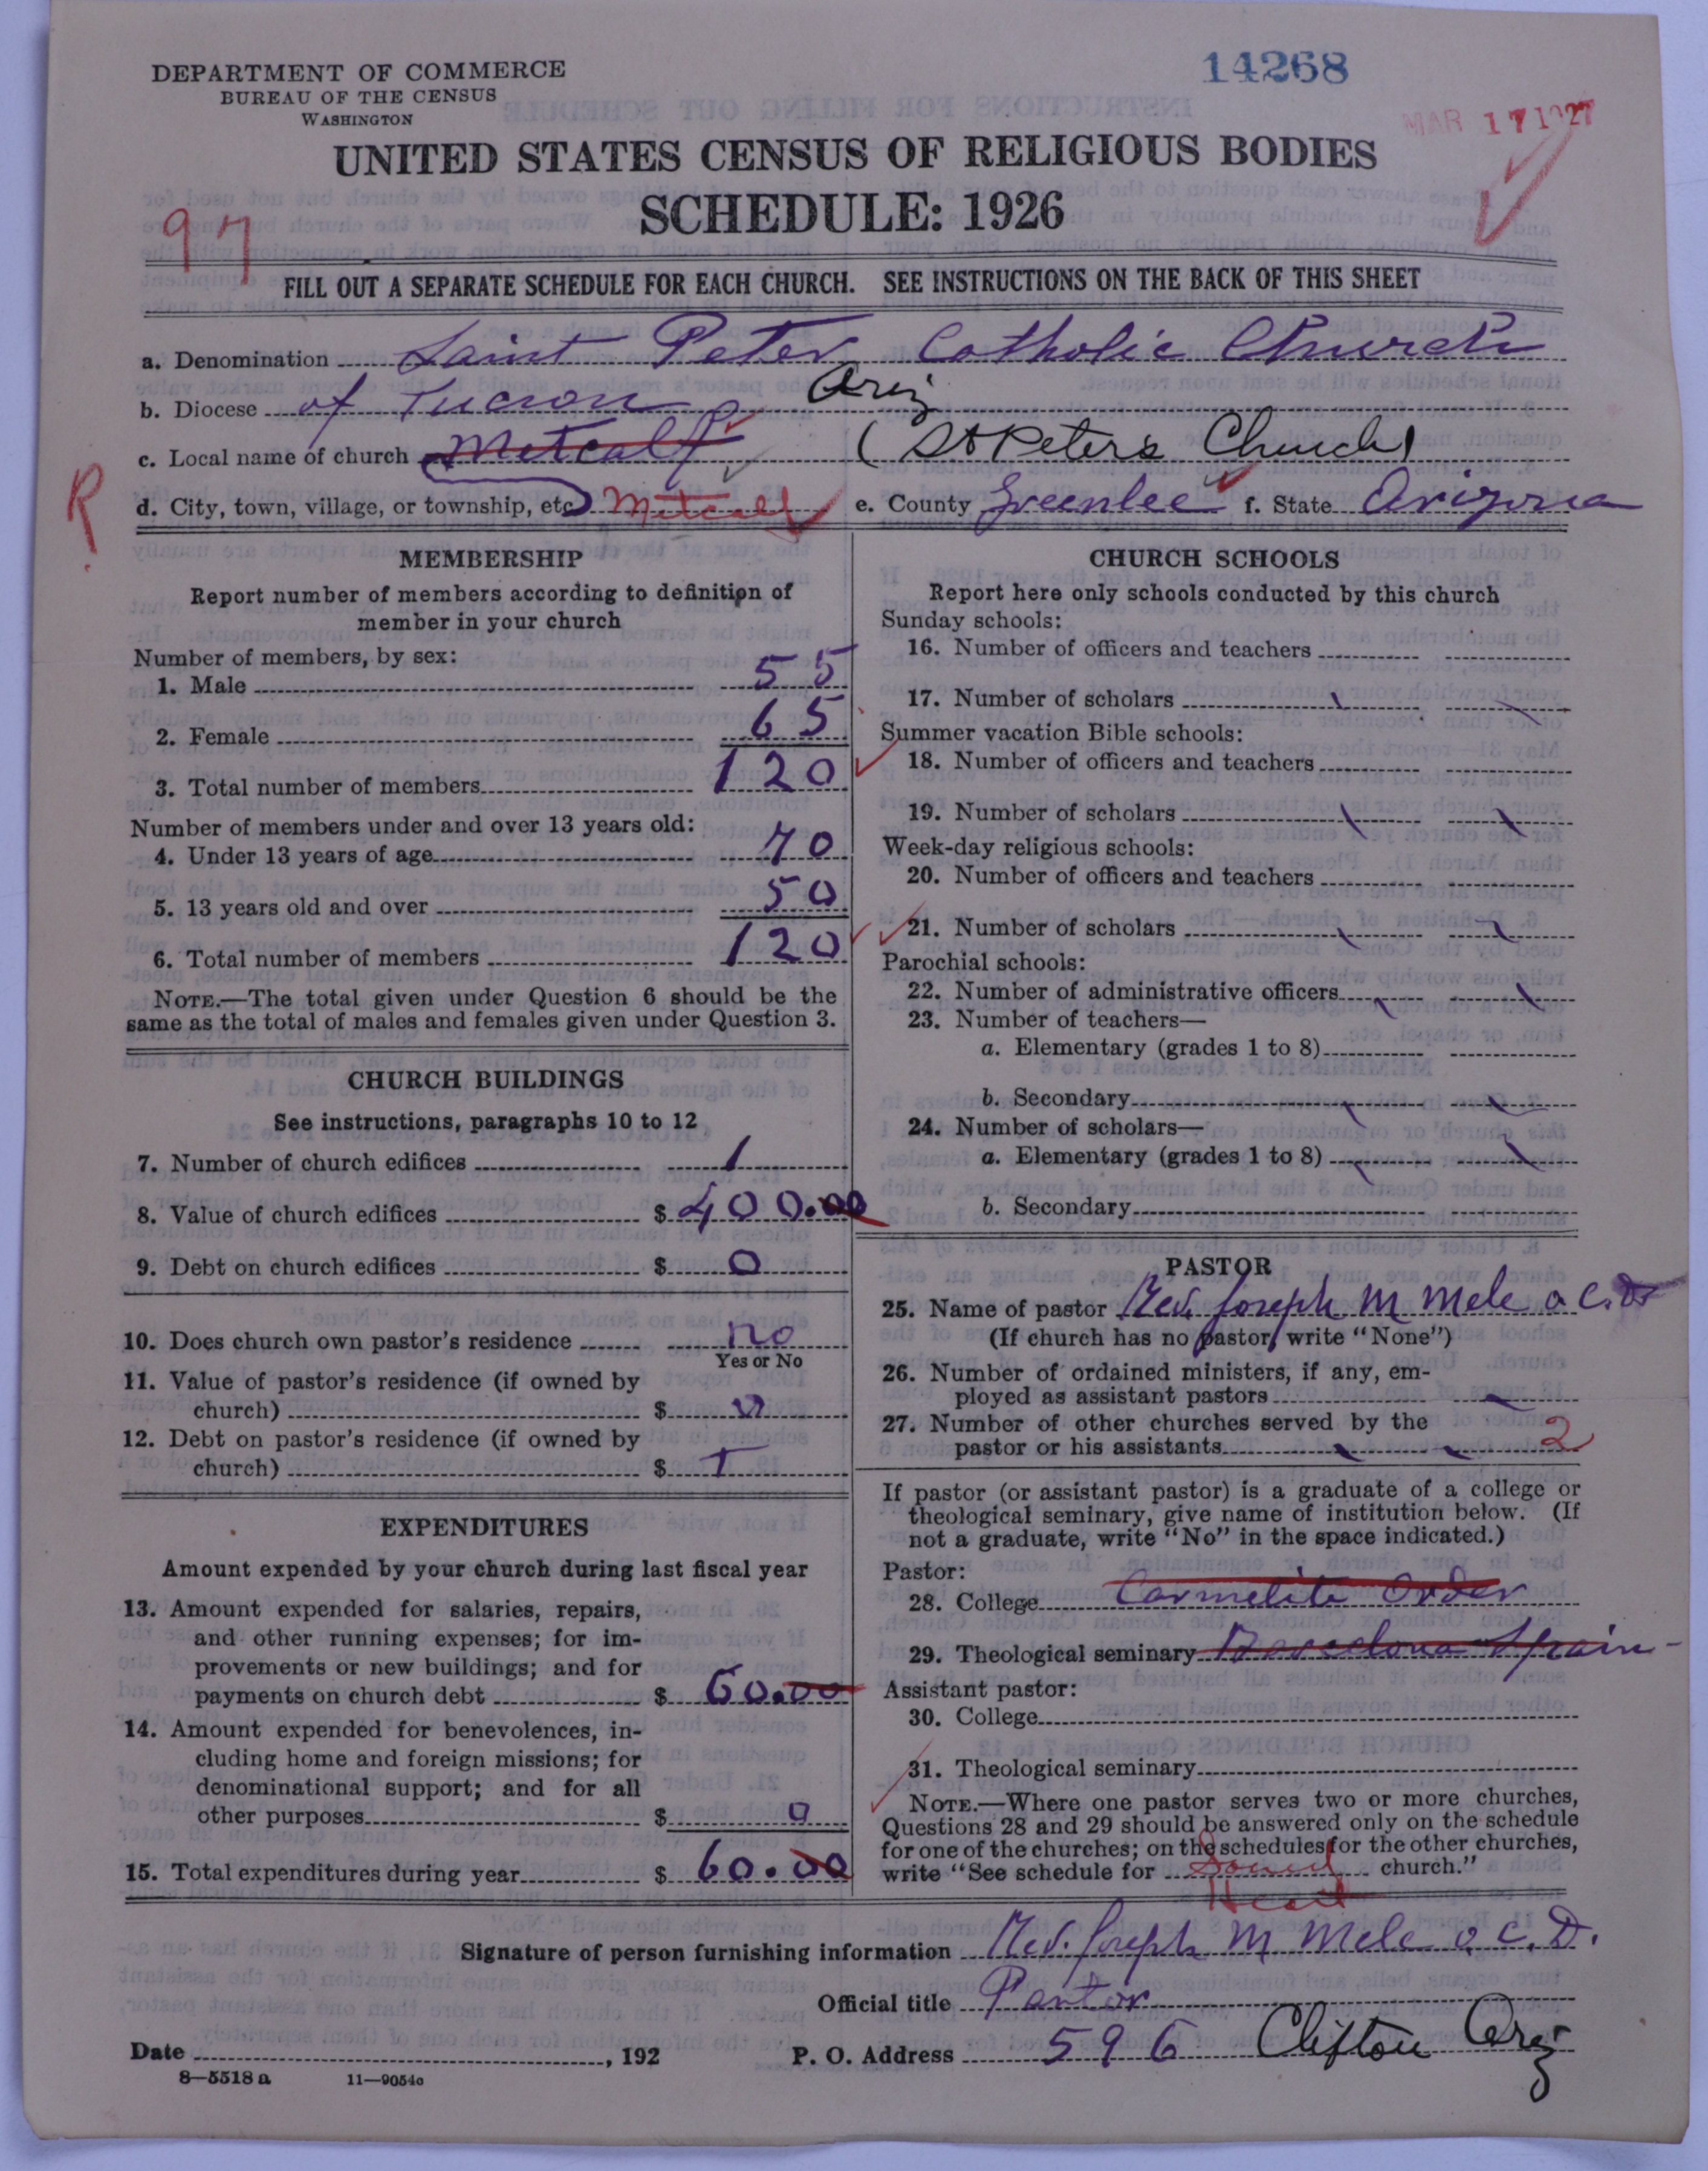 14268
DEPARTMENT OF COMMERCE
BUREAU OF THE CENSUS
WASHINGTON
MAR 17 1927
UNITED STATES CENSUS OF RELIGIOUS BODIES
SCHEDULE: 1926
97
FILL OUT A SEPARATE SCHEDULE FOR EACH CHURCH. SEE INSTRUCTIONS ON THE BACK OF THIS SHEET
a. Denomination Saint Peter Catholic Church
b. Diocese of Tucson Ariz
c. Local name of church Metcalf (St Peter's Church)
R
d. City, town, village, or township, etc. Metcalf e. County Greenlee f. State Arizona
MEMBERSHIP
Report number of members according to definition of
member in your church
Number of members, by sex:
1. Male 55
2. Female 65
3. Total number of members 120
Number of members under and over 13 years old:
4. Under 13 years of age 70
5. 13 years old and over 50
6. Total number of members 120
NOTE.—The total given under Question 6 should be the
same as the total of males and females given under Question 3.
CHURCH BUILDINGS
See instructions, paragraphs 10 to 12
7. Number of church edifices 1
8. Value of church edifices $ 400.00
9. Debt on church edifices $ 0
10. Does church own pastor's residence no
Yes or No
11. Value of pastor's residence (if owned by
church) $ 0
12. Debt on pastor's residence (if owned by
church) $
EXPENDITURES
Amount expended by your church during last fiscal year
13. Amount expended for salaries, repairs,
and other running expenses; for im-
provements or new buildings; and for
payments on church debt $ 60.00
14. Amount expended for benevolences, in-
cluding home and foreign missions; for
denominational support; and for all
other purposes $ 0
15. Total expenditures during year $ 60.00
CHURCH SCHOOLS
Report here only schools conducted by this church
Sunday schools:
16. Number of officers and teachers
17. Number of scholars
Summer vacation Bible schools:
18. Number of officers and teachers
19. Number of scholars
Week-day religious schools:
20. Number of officers and teachers
21. Number of scholars
Parochial schools:
22. Number of administrative officers
23. Number of teachers—
a. Elementary (grades 1 to 8)
b. Secondary
24. Number of scholars—
a. Elementary (grades 1 to 8)
b. Secondary
PASTOR
25. Name of pastor Rev. Joseph M Mele o c. D
(If church has no pastor, write "None")
26. Number of ordained ministers, if any, em-
ployed as assistant pastors
27. Number of other churches served by the
pastor or his assistants 2
If pastor (or assistant pastor) is a graduate of a college or
theological seminary, give name of institution below. (If
not a graduate, write "No" in the space indicated.)
Pastor:
28. College Carmelite Order
29. Theological seminary Barcelona Spain
Assistant pastor:
30. College
31. Theological seminary
NOTE.—Where one pastor serves two or more churches,
Questions 28 and 29 should be answered only on the schedule
for one of the churches; on the schedules for the other churches,
write "See schedule for Sacred church."
Heart
Signature of person furnishing information Rev. Joseph M Mele o. c. D.
Official title Pastor
Date , 192 P. O. Address 596 Clifton Ariz
8—5518a 11—9054c